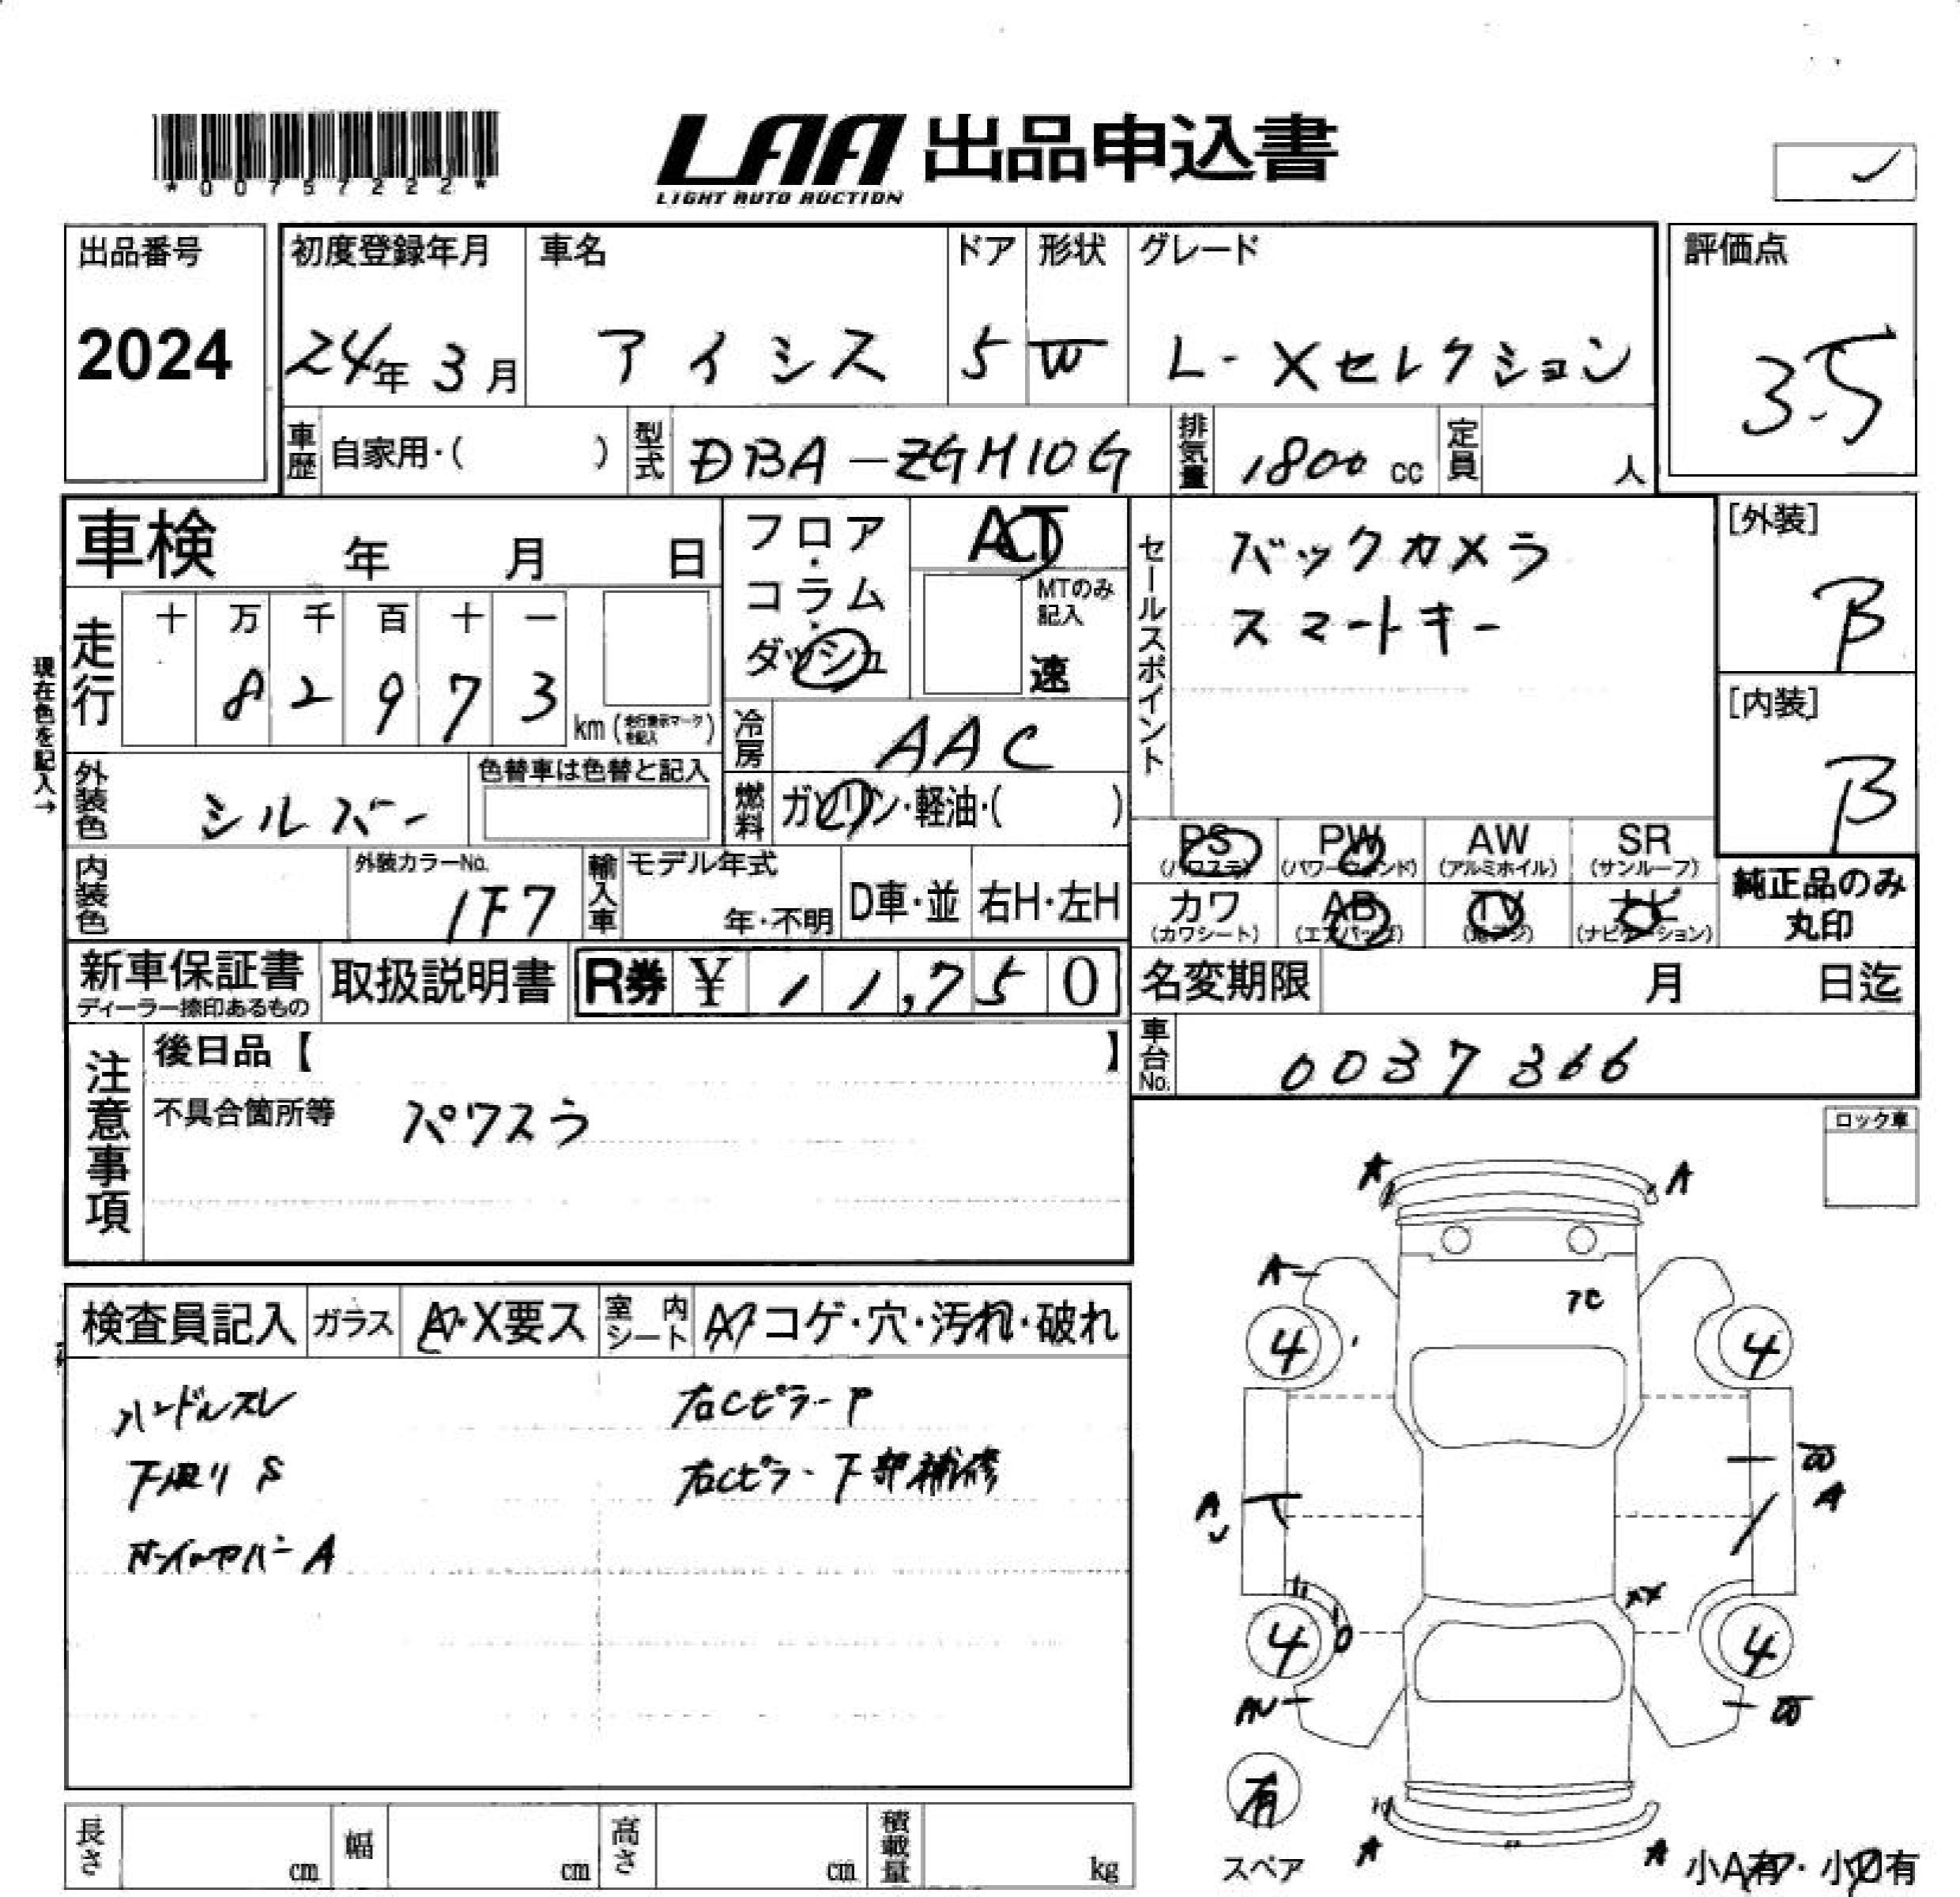 *00757222*
LAA 出品申込書
LIGHT AUTO AUCTION
出品番号 初度登録年月 車名 ドア 形状 グレード 評価点
2024 24年 3月 アイシス 5 W L-Xセレクション 3.5
車歴 自家用・( ) 型式 DBA-ZGM10G 排気量 1800 cc 定員 人
車検 年 月 日
フロア・コラム・ダッシュ
AT
MTのみ記入
速
セールスポイント
バックカメラ
スマートキー
[外装]
B
[内装]
B
現在色を記入→
走行 十 万 千 百 十 一
8 2 9 7 3 km (走行表示マークを記入)
冷房 AAC
外装色 シルバー 色替車は色替と記入
燃料 ガソリン・軽油・( )
PS (パワステ) PW (パワーウィンド) AW (アルミホイル) SR (サンルーフ)
カワ (カワシート) AB (エアバッグ) TV (地デジ) ナビ (ナビゲーション)
純正品のみ
丸印
内装色 外装カラーNo. 1F7 輸入車 モデル年式 年・不明 D車・並 右H・左H
新車保証書 ディーラー捺印あるもの 取扱説明書 R券 ¥ 11,750
名変期限 月 日迄
車台No. 0037366
注意事項
後日品【 】
不具合箇所等 パワスラ
ロック車
検査員記入 ガラス A・X要ス 室内シート Aコゲ・穴・汚れ・破れ
ハンドルスレ 右Cピラー P
下廻り S 右Cピラー下部補修
ホイルカバー A
A A
A
4 4
A
A
4 XX 4
AU
有
スペア
A A
小A有・小U有
長さ cm 幅 cm 高さ cm 積載量 kg